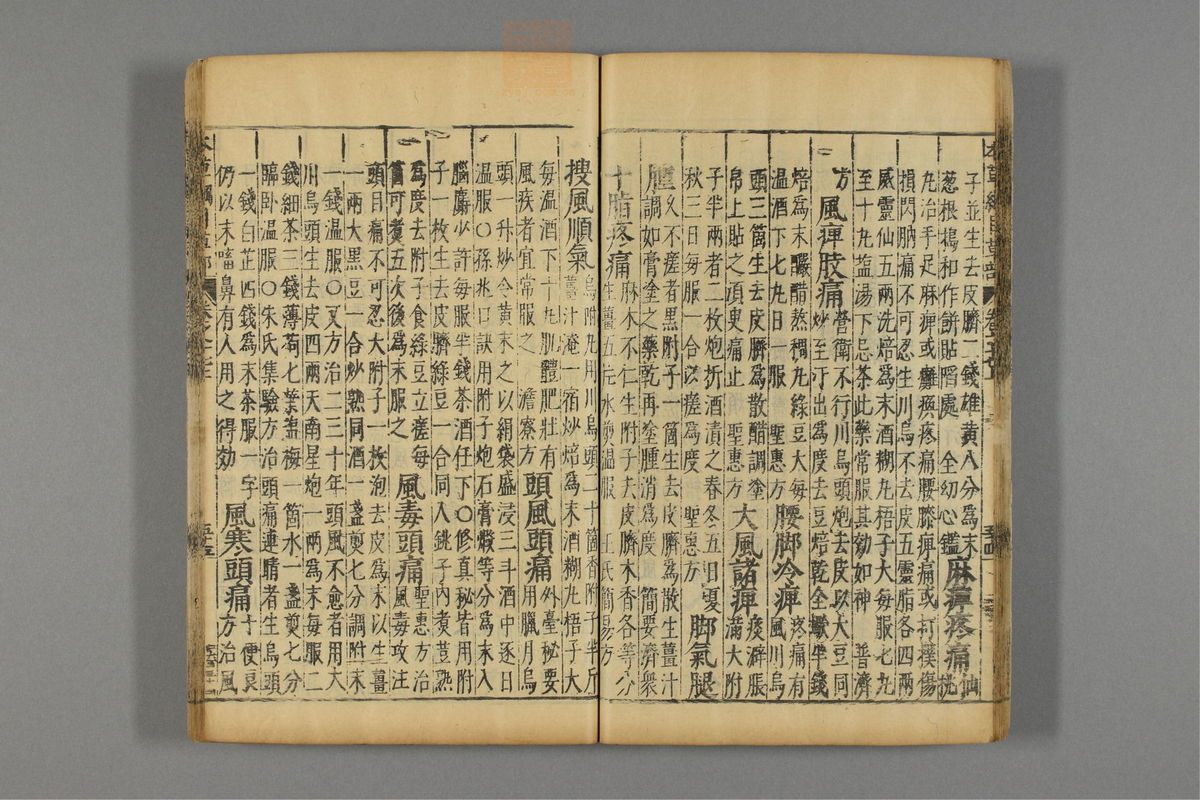 子並生去皮臍二錢雄黃八分為末
葱根搗和作餅貼陷處 全幼心鑑 麻痺疼痛 仙桃
丸治手足麻痺或癱瘓疼痛腰膝痺痛或打撲傷
損閃肭痛不可忍生川烏不去皮五靈脂各四兩
威靈仙五兩洗焙為末酒糊丸梧子大每服七丸
至十丸鹽湯下忌茶此藥常服其効如神 普濟
方 風痺肢痛 營衛不行川烏頭炮去皮以大豆同
炒至汗出為度去豆焙乾全蠍半錢
焙為末釅醋熬稠丸綠豆大每
溫酒下七丸日一服 腰脚冷痺 疼痛有風川烏
頭三箇生去皮臍為散醋調塗
帛上貼之須臾痛止 聖惠方 大風諸痺 痰澼脹滿大附
子半兩者二枚炮折酒漬之春冬五日夏
秋三日每服一合以瘥為度 聖惠方 脚氣腿
腫 久不瘥者黑附子一箇生去皮臍為散生薑汁
調如膏塗之藥乾再塗腫消為度 簡要濟衆
十指疼痛 麻木不仁生附子去皮臍木香各等分
生薑五片水煎溫服 王氏簡易方
搜風順氣 烏附丸用川烏頭二十箇香附子半斤
薑汁淹一宿炒焙為末酒糊丸梧子大
每溫酒下十丸肌體肥壯有
風疾者宜常服之 澹寮方 頭風頭痛 外臺秘要用臘月烏
頭一升炒令黃末之以絹袋盛浸三斗酒中逐日
溫服○孫兆口訣用附子炮石膏煅等分為末入
腦麝少許每服半錢茶酒任下○修真秘旨用附
子一枚生去皮臍綠豆一合同入銚子內煮豆熟
為度去附子食綠豆立瘥每
箇可煮五次後為末服之 風毒頭痛 聖惠方治風毒攻注
頭目痛不可忍大附子一枚泡去皮為末以生薑
一兩大黑豆一合炒熟同酒一盞煎七分調附末
一錢溫服○又方治二三十年頭風不愈者用大
川烏頭生去皮四兩天南星炮一兩為末每服二
錢細茶三錢薄荷七葉鹽梅一箇水一盞煎七分
臨卧溫服○朱氏集驗方治頭痛連睛者生烏頭
一錢白芷四錢為末茶服一字
仍以末㗜鼻有人用之得効 風寒頭痛 十便良方治風